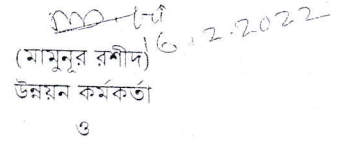 16.2.2022
(মামুনূর রশীদ)
উন্নয়ন কর্মকর্তা
ও